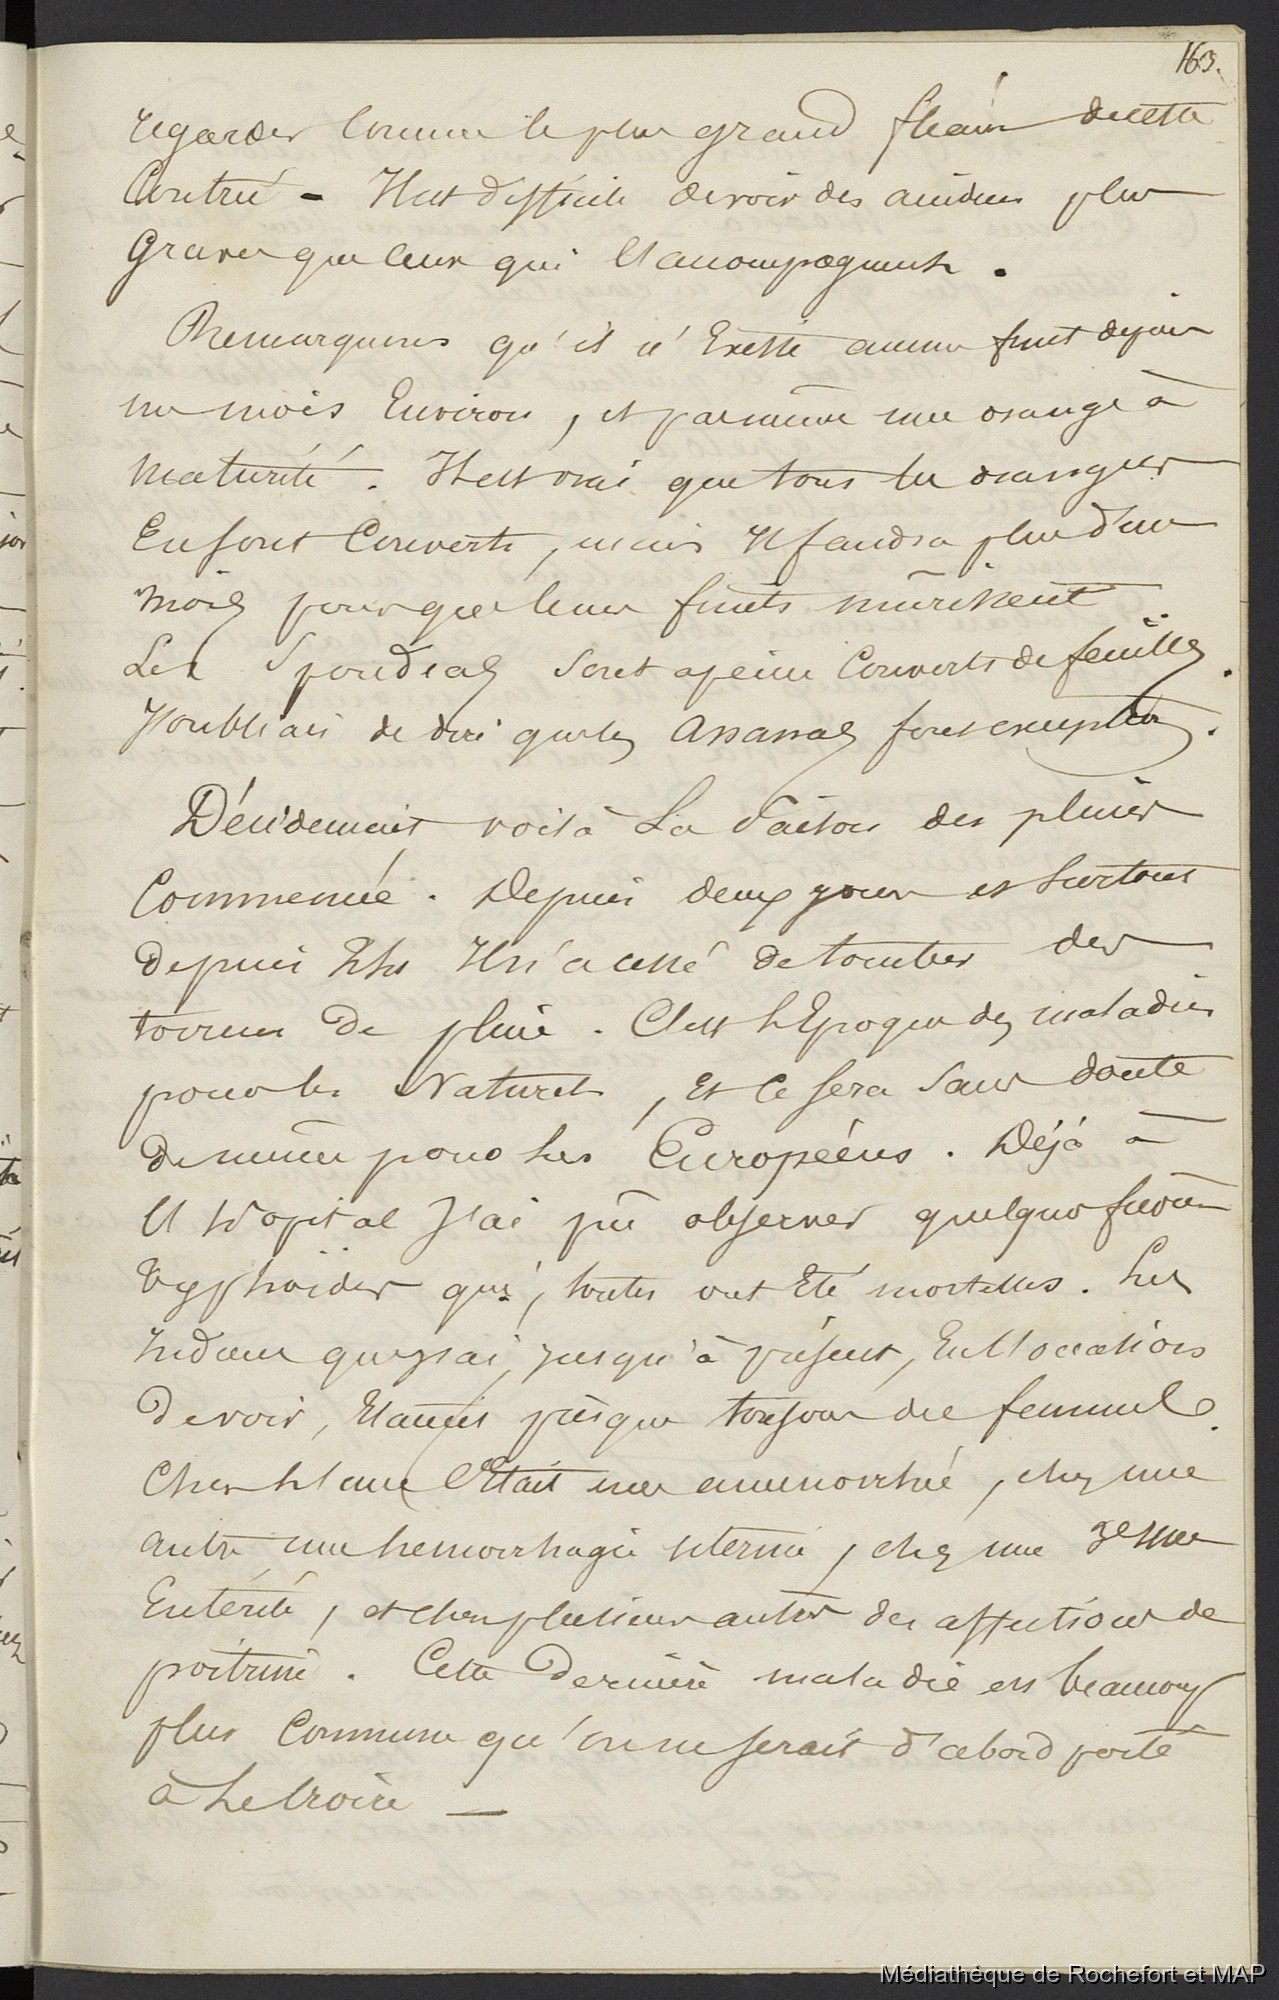 163.
regarder comme le plus grand fléau de cette
Contrée - Il est difficile de voir des accidens plus
Graves que ceux qui l'accompagnent.
Remarquons qu'il n'Existe aucun fruit depuis
un mois Environ, et pas même une orange à
Maturité. Il est vrai que tous les orangers
En sont Couverts, mais il faudra plus d'un
mois pour que leurs fruits mûrissent
Les Spondias sont apeine Couverts de feuilles.
J'oubliais de dire que les ananas font exception.
Décidement voilà La Saison des pluies
Commencée. Depuis deux jours et surtout
depuis hier Il n'a cessé de tomber des
torrens de pluie. C'est l'Epoque des maladies
pour les Naturels, Et ce sera sans doute
de même pour les Européens. Déjà à
l'hopital J'ai pû observer quelques fièvres
typhoïdes qui, toutes ont Eté mortelles. Les
Indiens que j'ai, jusqu'à présent, Eu l'occasions
de voir, Etaient presque toujours des femmes.
Chez l'une C'Etait une amenorrhée, chez une
autre une hemorrhagie uterine, chez une 3e une
Entérite, et chez plusieurs autres des affections de
poitrine. Cette Dernière maladie est beaucoup
plus Commune qu'on ne serait d'abord porté
à Le Croire —
Médiathèque de Rochefort et MAP